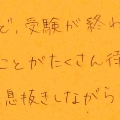 ど,受験が終わ
ことがたくさん待
息抜きしながら